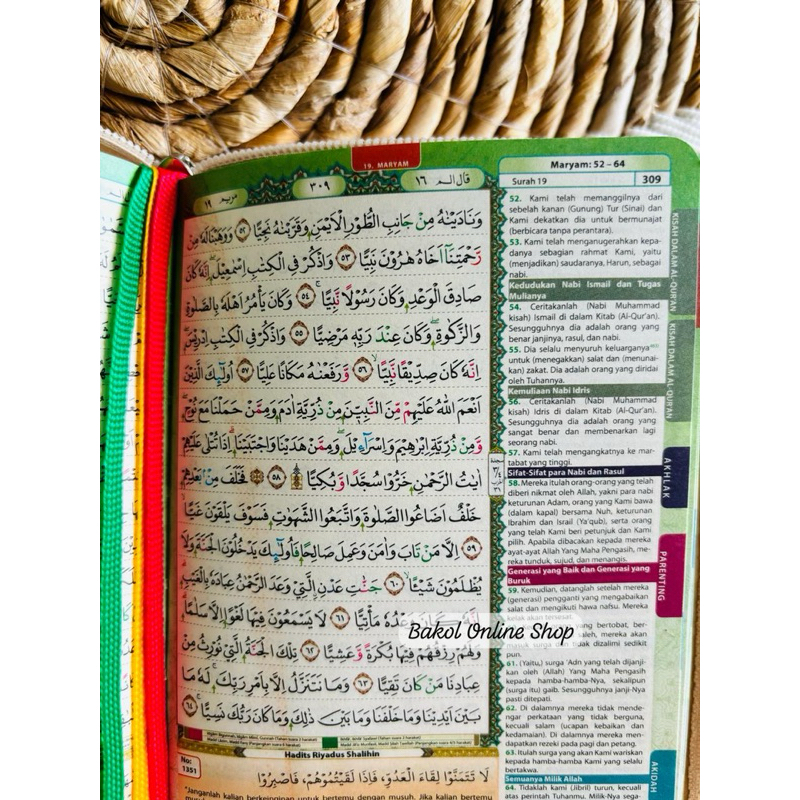 19. MARYAM
مريم ١٩
٣٠٩
قال الم ١٦
وَنَادَيْنٰهُ مِنْ جَانِبِ الطُّوْرِ الْاَيْمَنِ وَقَرَّبْنٰهُ نَجِيًّا ٥٢ وَوَهَبْنَا لَهٗ مِنْ
رَّحْمَتِنَآ اَخَاهُ هٰرُوْنَ نَبِيًّا ٥٣ وَاذْكُرْ فِى الْكِتٰبِ اِسْمٰعِيْلَ ۖ اِنَّهٗ كَانَ
صَادِقَ الْوَعْدِ وَكَانَ رَسُوْلًا نَّبِيًّا ۚ ٥٤ وَكَانَ يَأْمُرُ اَهْلَهٗ بِالصَّلٰوةِ
وَالزَّكٰوةِ ۖ وَكَانَ عِنْدَ رَبِّهٖ مَرْضِيًّا ٥٥ وَاذْكُرْ فِى الْكِتٰبِ اِدْرِيْسَ ۖ
اِنَّهٗ كَانَ صِدِّيْقًا نَّبِيًّا ۙ ٥٦ وَّرَفَعْنٰهُ مَكَانًا عَلِيًّا ٥٧ اُولٰۤىِٕكَ الَّذِيْنَ
اَنْعَمَ اللّٰهُ عَلَيْهِمْ مِّنَ النَّبِيّٖنَ مِنْ ذُرِّيَّةِ اٰدَمَ وَمِمَّنْ حَمَلْنَا مَعَ نُوْحٍ ۖ
وَّمِنْ ذُرِّيَّةِ اِبْرٰهِيْمَ وَاِسْرَاۤءِيْلَ ۖ وَمِمَّنْ هَدَيْنَا وَاجْتَبَيْنَا ۗ اِذَا تُتْلٰى عَلَيْهِمْ
اٰيٰتُ الرَّحْمٰنِ خَرُّوْا سُجَّدًا وَّبُكِيًّا ۩ ٥٨ فَخَلَفَ مِنْۢ بَعْدِهِمْ
خَلْفٌ اَضَاعُوا الصَّلٰوةَ وَاتَّبَعُوا الشَّهَوٰتِ فَسَوْفَ يَلْقَوْنَ غَيًّا ۙ
٥٩ اِلَّا مَنْ تَابَ وَاٰمَنَ وَعَمِلَ صَالِحًا فَاُولٰۤىِٕكَ يَدْخُلُوْنَ الْجَنَّةَ وَلَا
يُظْلَمُوْنَ شَيْـًٔا ۙ ٦٠ جَنّٰتِ عَدْنِ ِۨالَّتِيْ وَعَدَ الرَّحْمٰنُ عِبَادَهٗ بِالْغَيْبِ ۗ
اِنَّهٗ كَانَ وَعْدُهٗ مَأْتِيًّا ٦١ لَا يَسْمَعُوْنَ فِيْهَا لَغْوًا اِلَّا سَلٰمًا ۗ
وَلَهُمْ رِزْقُهُمْ فِيْهَا بُكْرَةً وَّعَشِيًّا ٦٢ تِلْكَ الْجَنَّةُ الَّتِيْ نُوْرِثُ مِنْ
عِبَادِنَا مَنْ كَانَ تَقِيًّا ٦٣ وَمَا نَتَنَزَّلُ اِلَّا بِاَمْرِ رَبِّكَ ۚ لَهٗ مَا
بَيْنَ اَيْدِيْنَا وَمَا خَلْفَنَا وَمَا بَيْنَ ذٰلِكَ وَمَا كَانَ رَبُّكَ نَسِيًّا ۚ ٦٤
Hadits Riyadus Shalihin
No:
1351
لَا تَتَمَنَّوْا لِقَاءَ الْعَدُوِّ، فَاِذَا لَقِيْتُمُوْهُمْ، فَاصْبِرُوْا
"Janganlah kalian berkeinginan untuk bertemu dengan musuh. Jika kalian bertemu
Maryam: 52 – 64
Surah 19
309
52. Kami telah memanggilnya dari
sebelah kanan (Gunung) Tur (Sinai) dan
Kami dekatkan dia untuk bermunajat
(berbicara tanpa perantara).
53. Kami telah menganugerahkan kepa-
danya sebagian rahmat Kami, yaitu
(menjadikan) saudaranya, Harun, sebagai
nabi.
Kedudukan Nabi Ismail dan Tugas
Mulianya
54. Ceritakanlah (Nabi Muhammad
kisah) Ismail di dalam Kitab (Al-Qur'an).
Sesungguhnya dia adalah orang yang
benar janjinya, rasul, dan nabi.
55. Dia selalu menyuruh keluarganya
untuk (menegakkan) salat dan (menunai-
kan) zakat. Dia adalah orang yang diridai
oleh Tuhannya.
Kemuliaan Nabi Idris
56. Ceritakanlah (Nabi Muhammad
kisah) Idris di dalam Kitab (Al-Qur'an).
Sesungguhnya dia adalah orang yang
sangat benar dan membenarkan lagi
seorang nabi.
57. Kami telah mengangkatnya ke mar-
tabat yang tinggi.
Sifat-Sifat para Nabi dan Rasul
58. Mereka itulah orang-orang yang telah
diberi nikmat oleh Allah, yakni para nabi
keturunan Adam, orang yang Kami bawa
(dalam kapal) bersama Nuh, keturunan
Ibrahim dan Israil (Ya'qub), serta orang
yang telah Kami beri petunjuk dan Kami
pilih. Apabila dibacakan kepada mereka
ayat-ayat Allah Yang Maha Pengasih, me-
reka tunduk, sujud, dan menangis.
Generasi yang Baik dan Generasi yang
Buruk
59. Kemudian, datanglah setelah mereka
(generasi) pengganti yang mengabaikan
salat dan mengikuti hawa nafsu. Mereka
kelak akan tersesat.
yang bertobat, ber-
saleh, mereka akan
tidak dizalimi sedikit
pun.
61. (Yaitu,) surga 'Adn yang telah dijanji-
kan oleh (Allah) Yang Maha Pengasih
kepada hamba-hamba-Nya, sekalipun
(surga itu) gaib. Sesungguhnya janji-Nya
pasti ditepati.
62. Di dalamnya mereka tidak mende-
ngar perkataan yang tidak berguna,
kecuali salam (ucapan kebaikan dan
kedamaian). Di dalamnya mereka men-
dapatkan rezeki pada pagi dan petang.
63. Itulah surga yang akan Kami wariskan
kepada hamba-hamba Kami yang selalu
bertakwa.
Semuanya Milik Allah
64. Tidaklah kami (Jibril) turun, kecuali
atas perintah Tuhanmu. Milik-Nya sega-
KISAH DALAM AL-QUR'AN
KISAH DALAM AL-QUR'AN
AKHLAK
PARENTING
AKIDAH
Bakol Online Shop